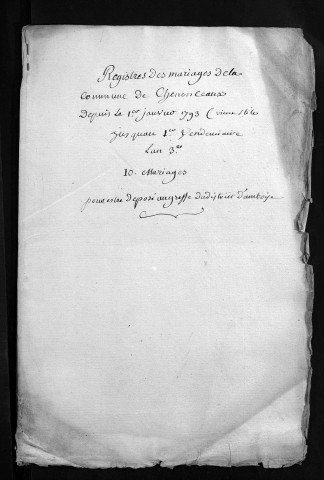 Registres Des mariages De la
Commune de Chenonceaux
Depuis Le 1er janvier 1793 (vieux stile
jusqu'au 1er Vendemiaire
L'an 3e
10. Mariages
pour estre deposé au greffe du district d'amboise